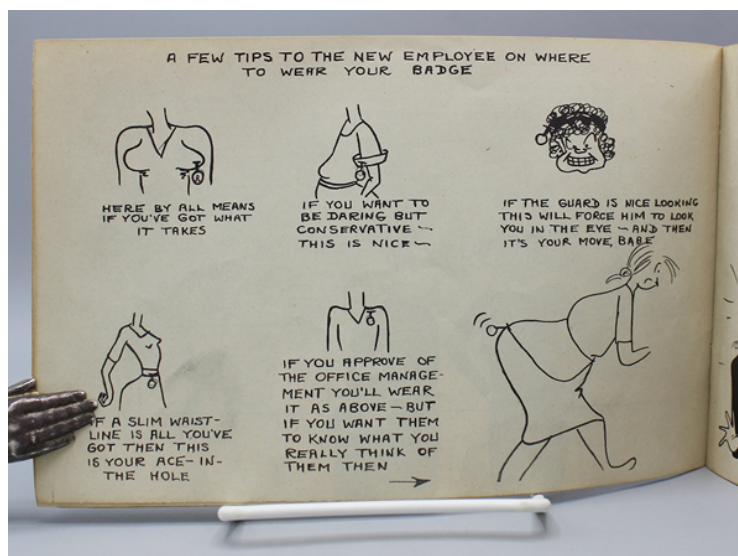 A FEW TIPS TO THE NEW EMPLOYEE ON WHERE
TO WEAR YOUR BADGE
HERE BY ALL MEANS
IF YOU'VE GOT WHAT
IT TAKES
IF YOU WANT TO
BE DARING BUT
CONSERVATIVE ~
THIS IS NICE ~
IF THE GUARD IS NICE LOOKING
THIS WILL FORCE HIM TO LOOK
YOU IN THE EYE ~ AND THEN
IT'S YOUR MOVE, BABE
IF A SLIM WAIST-
LINE IS ALL YOU'VE
GOT THEN THIS
IS YOUR ACE-IN-
THE HOLE
IF YOU APPROVE OF
THE OFFICE MANAGE-
MENT YOU'LL WEAR
IT AS ABOVE - BUT
IF YOU WANT THEM
TO KNOW WHAT YOU
REALLY THINK OF
THEM THEN